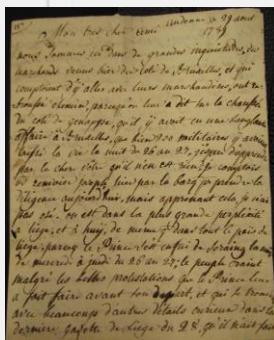 Mon tres cher ami andenne 29 aout
1789
nous sommes ici dans de grandes inquietudes, des
marchands venus hier du coté de bruxelles, et qui
comptoient d'y aller avec leurs marchandises, ont re-
brousse chemin, parcequ'on leur a dit sur la chaussée
du coté de genappe, qu'il y avoit eu une
affaire à bruxelles, que bien des militaires y avoient
laissé la vie la nuit du 26 au 27,
par le cher votre qu'il n'en est rien, je comptois
de
diligence aujourd'hui, mais apprenant cela, je n'ai
pas osé. on est dans la plus grande perplexité
a liege, et à huy, de meme que dans tout le pais de
liege, parceque le Prince s'est enfui de seraing la nuit
de mercredi à jeudi du 26 au 27, le peuple craint
malgré les belles protestations que le Prince leur
a fait faire avant son depart, et qui se trouvent
avec beaucoup d'autres détails curieux dans la
derniere gazette de liege du 28, qu'il n'ait fait